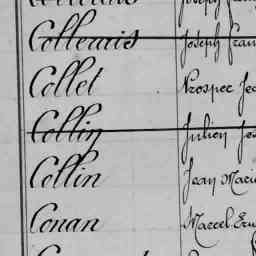 Colleuris Joseph Fran
Collet Prosper Je
Collin Julien Jos
Collin Jean Marie
Conan Marcel Ern